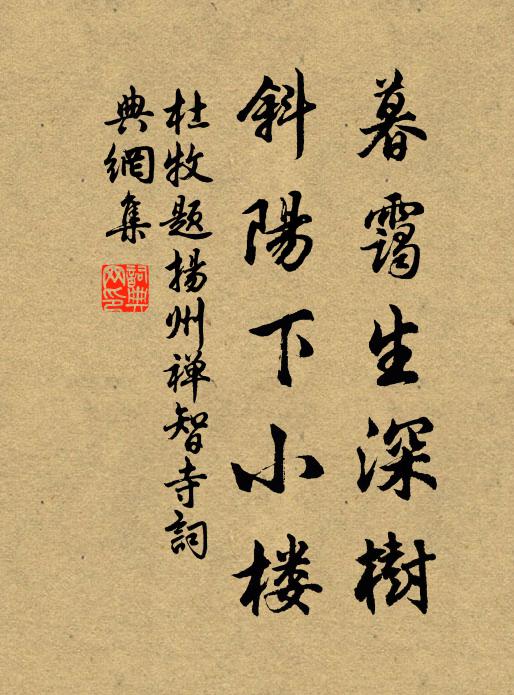 暮靄生深樹
斜陽下小楼
杜牧题揚州禅智寺詞
典網集
詞典
网印